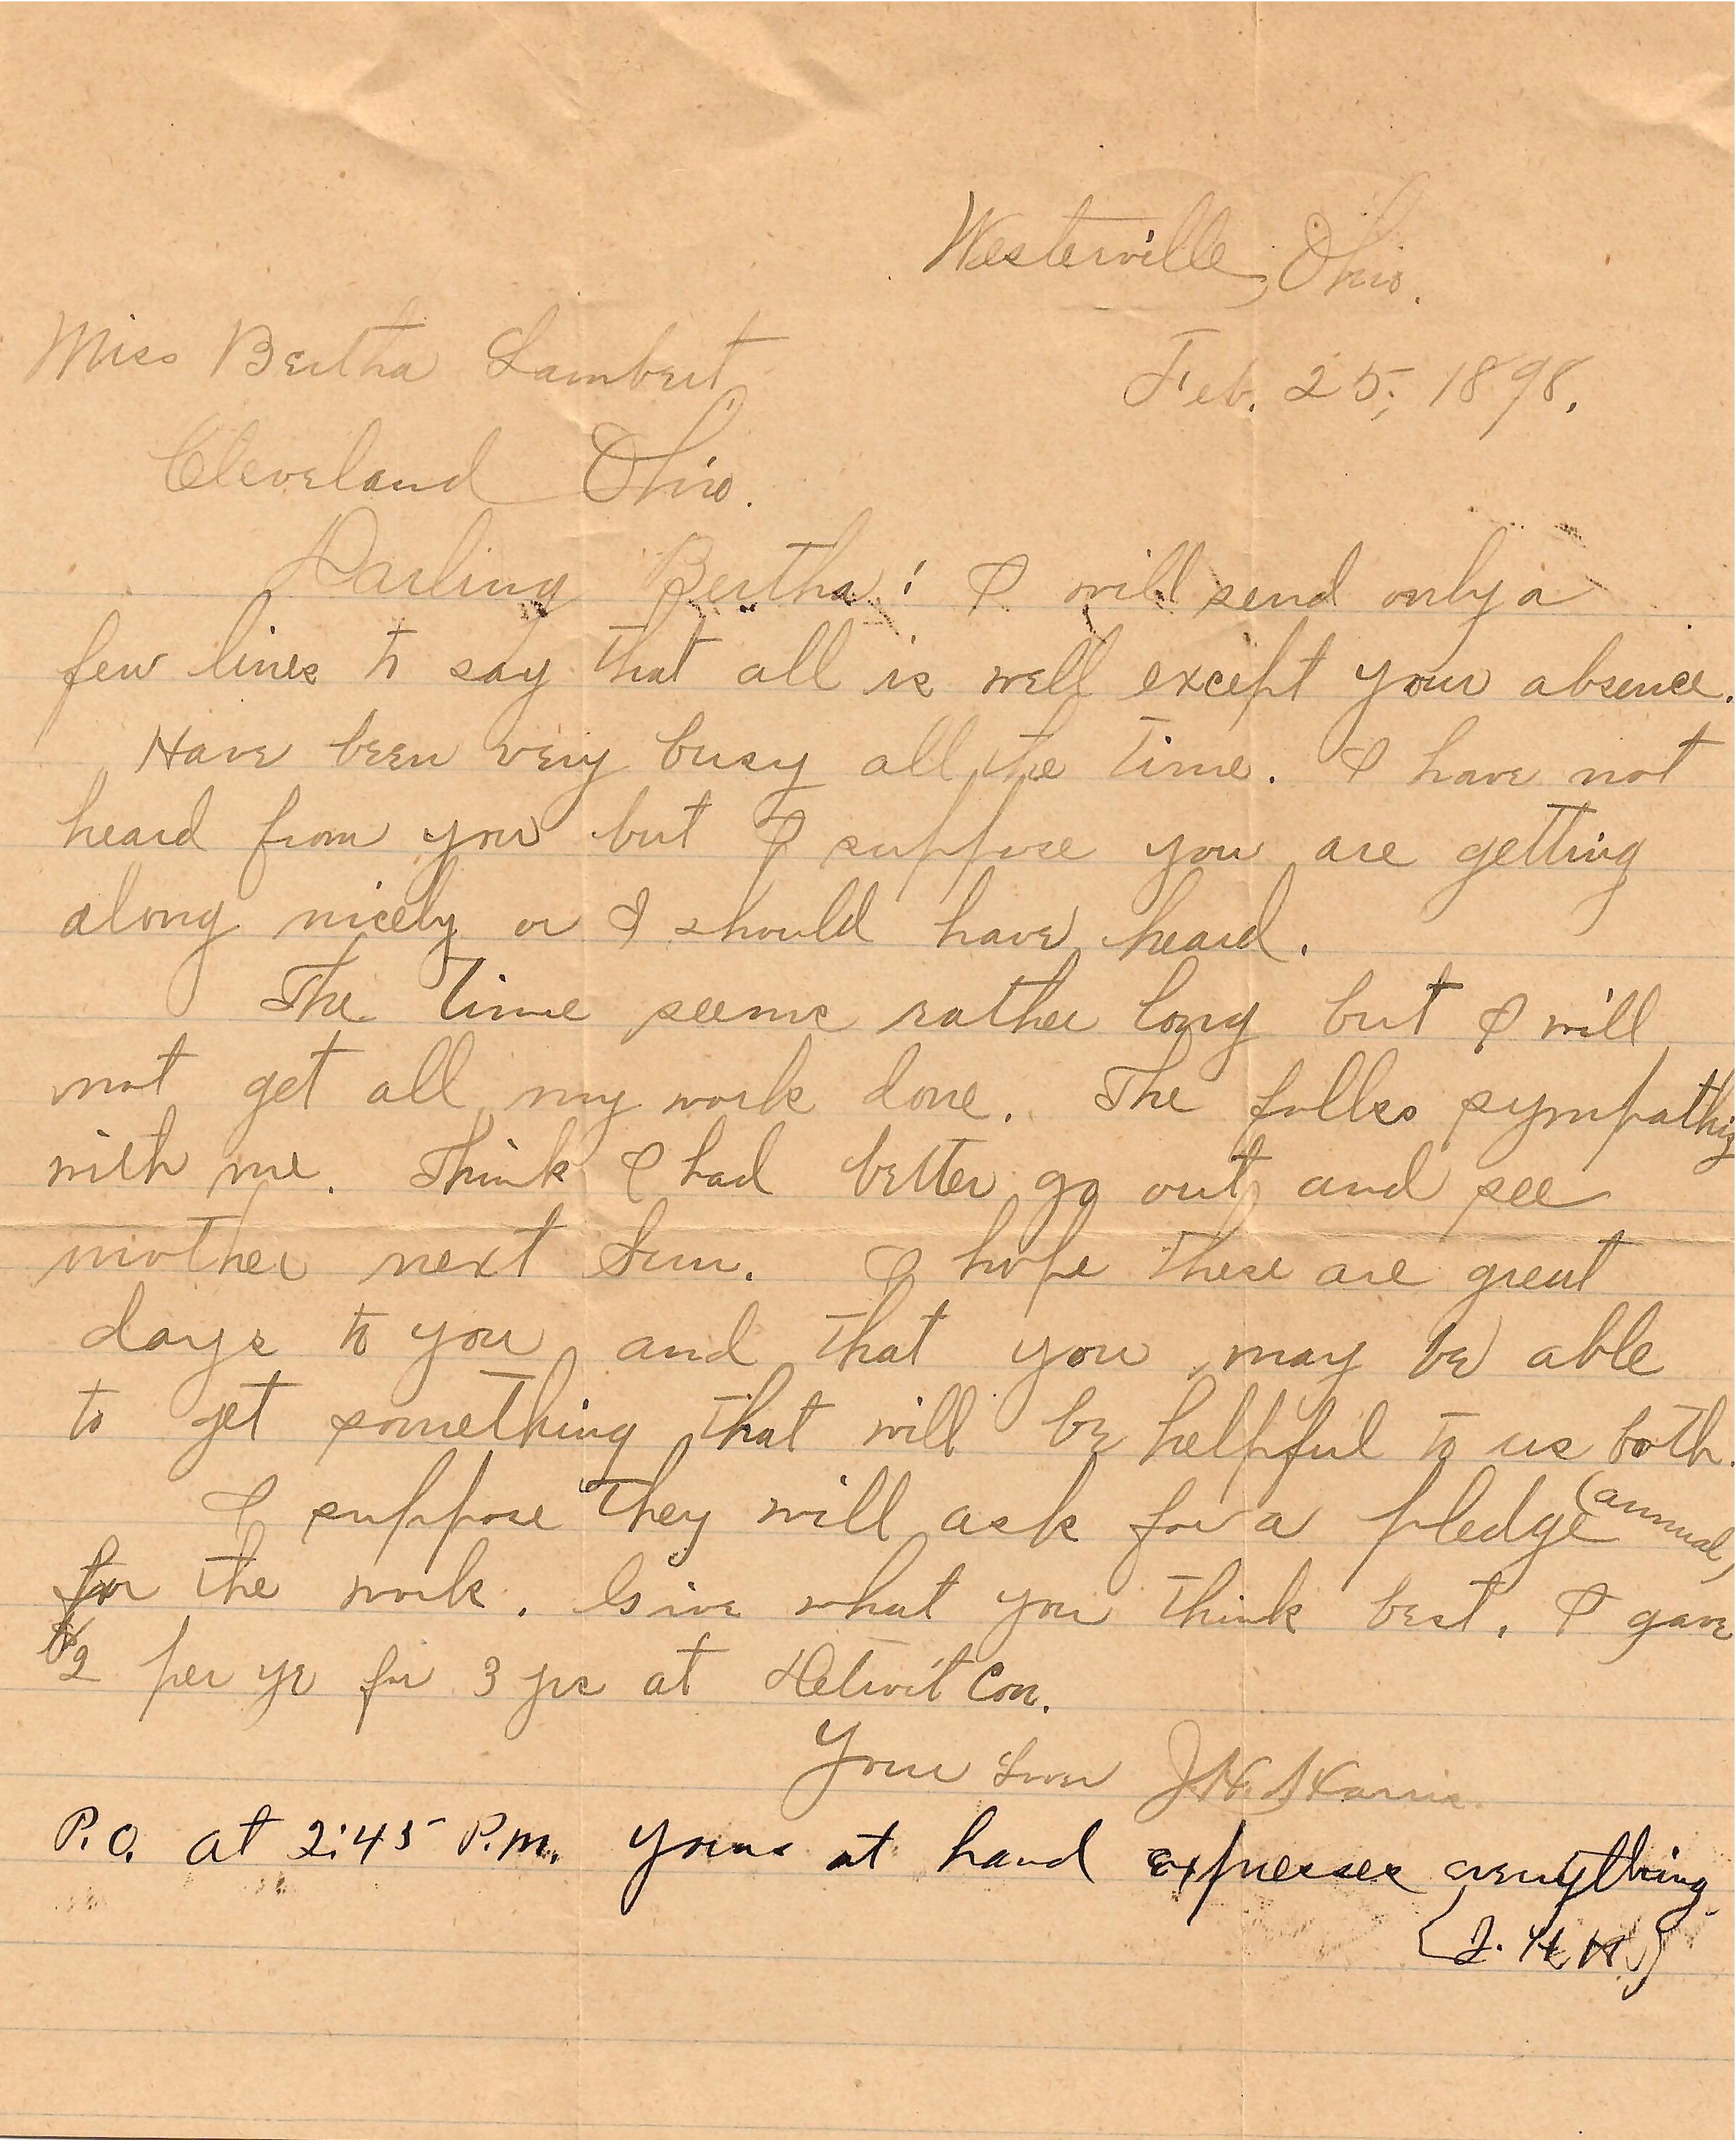 Westerville, Ohio.
Feb. 25, 1898.
Miss Bertha Lambert,
Cleveland Ohio.
Darling Bertha: I will send only a
few lines to say that all is well except your absence.
Have been very busy all the time. I have not
heard from you but I suppose you are getting
along nicely or I should have heard.
The time seems rather long but I will
not get all my work done. The folks sympathiz
with me. Think I had better go out and see
mother next Sun. I hope these are great
days to you and that you may be able
to get something that will be helpful to us both.
I suppose they will ask for a pledge (annual)
for the work. Give what you think best. I gave
$2 per yr for 3 yrs at Detroit Con.
Your Lover J. H. Harris.
P.O. at 2:45 P.M. Yours at hand expresses everything.
{J. H. H.}